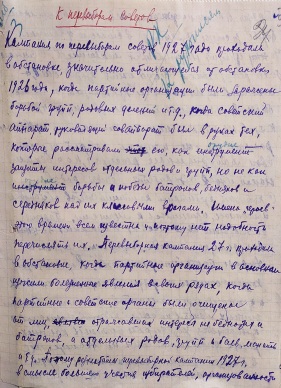 К перевыборам советов
Кампания по перевыборам советов 1927 года проходила
в обстановке значительно отличающейся от обстановки
1926 года, когда партийные организации были заражены
борьбой групп, родовых делений и т.д., когда советский
аппарат, руководящий был в руках тех,
которые рассматривали его, как орудие
защиты интересов отдельных родов и групп, но не как
борьбы и победы батраков, бедняков и
середняков над их классовыми врагами.
время всем известны и поэтому нет надобности
перечислять их. Перевыборная кампания 27 г. проходила
в обстановке, когда партийные организации в основном
болезненные явления в своих рядах, когда
партийные и советские органы были очищены
от лиц, отражавших интересы не бедноты и
батраков, а отдельных родов, групп и баев, манапов
и т.д. Поэтому результаты перевыборной кампании 1927 г.
в смысле большего участия избирателей, организованности